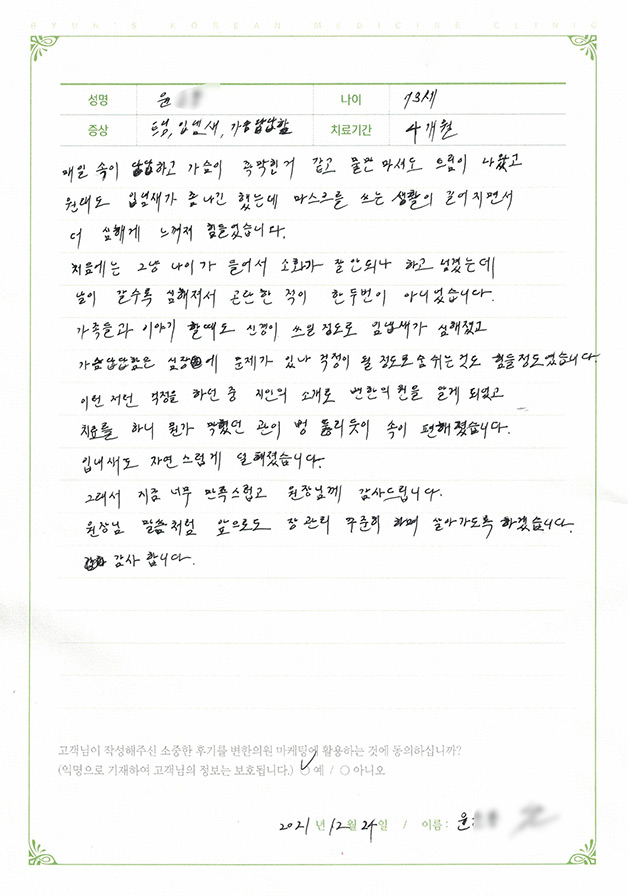 BYUN'S KOREAN MEDICINE CLINIC
성명 윤 나이 73세
증상 트림, 입냄새, 가슴답답함 치료기간 4개월
매일 속이 답답하고 가슴이 꽉막힌거 같고 물만 마셔도 트림이 나왔고
원래도 입냄새가 좀 나긴 했는데 마스크를 쓰는 생활이 길어지면서
더 심하게 느껴져 힘들었습니다.
처음에는 그냥 나이가 들어서 소화가 잘 안되나 하고 넘겼는데
날이 갈수록 심해져서 곤란한 적이 한두번이 아니었습니다.
가족들과 이야기 할때도 신경이 쓰일 정도로 입냄새가 심해졌고
가슴답답함은 심장에 문제가 있나 걱정이 될 정도로 숨쉬는것도 힘들정도였습니다.
이런 저런 걱정을 하던 중 지인의 소개로 변한의원을 알게 되었고
치료를 하니 뭔가 막혔던 관이 뻥 뚫리듯이 속이 편해졌습니다.
입냄새도 자연스럽게 덜해졌습니다.
그래서 지금 너무 만족스럽고 원장님께 감사드립니다.
원장님 말씀처럼 앞으로도 장관리 꾸준히 하며 살아가도록 하겠습니다.
감사합니다.
고객님이 작성해주신 소중한 후기를 변한의원 마케팅에 활용하는 것에 동의하십니까?
(익명으로 기재하여 고객님의 정보는 보호됩니다.) ○ 예 / ○ 아니오
2021 년 12 월 24 일 / 이름 : 윤